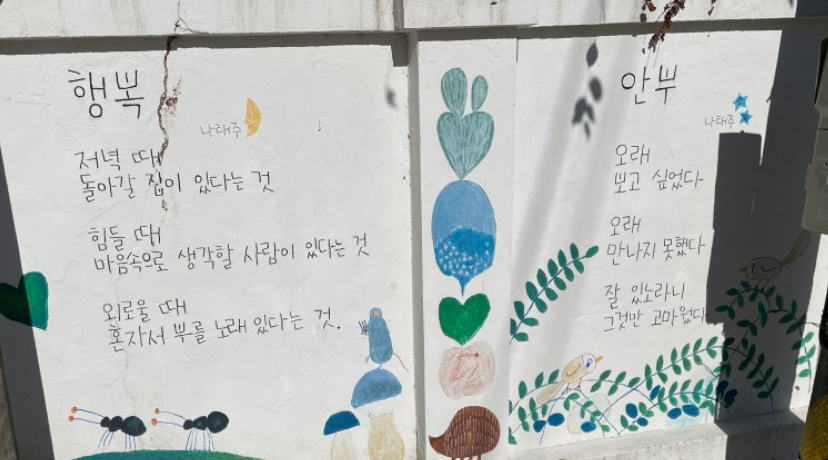 행복
나태주
저녁 때
돌아갈 집이 있다는 것
힘들 때
마음속으로 생각할 사람이 있다는 것
외로울 때
혼자서 부를 노래 있다는 것.
안부
나태주
오래
보고 싶었다
오래
만나지 못했다
잘 있노라니
그것만 고마웠다